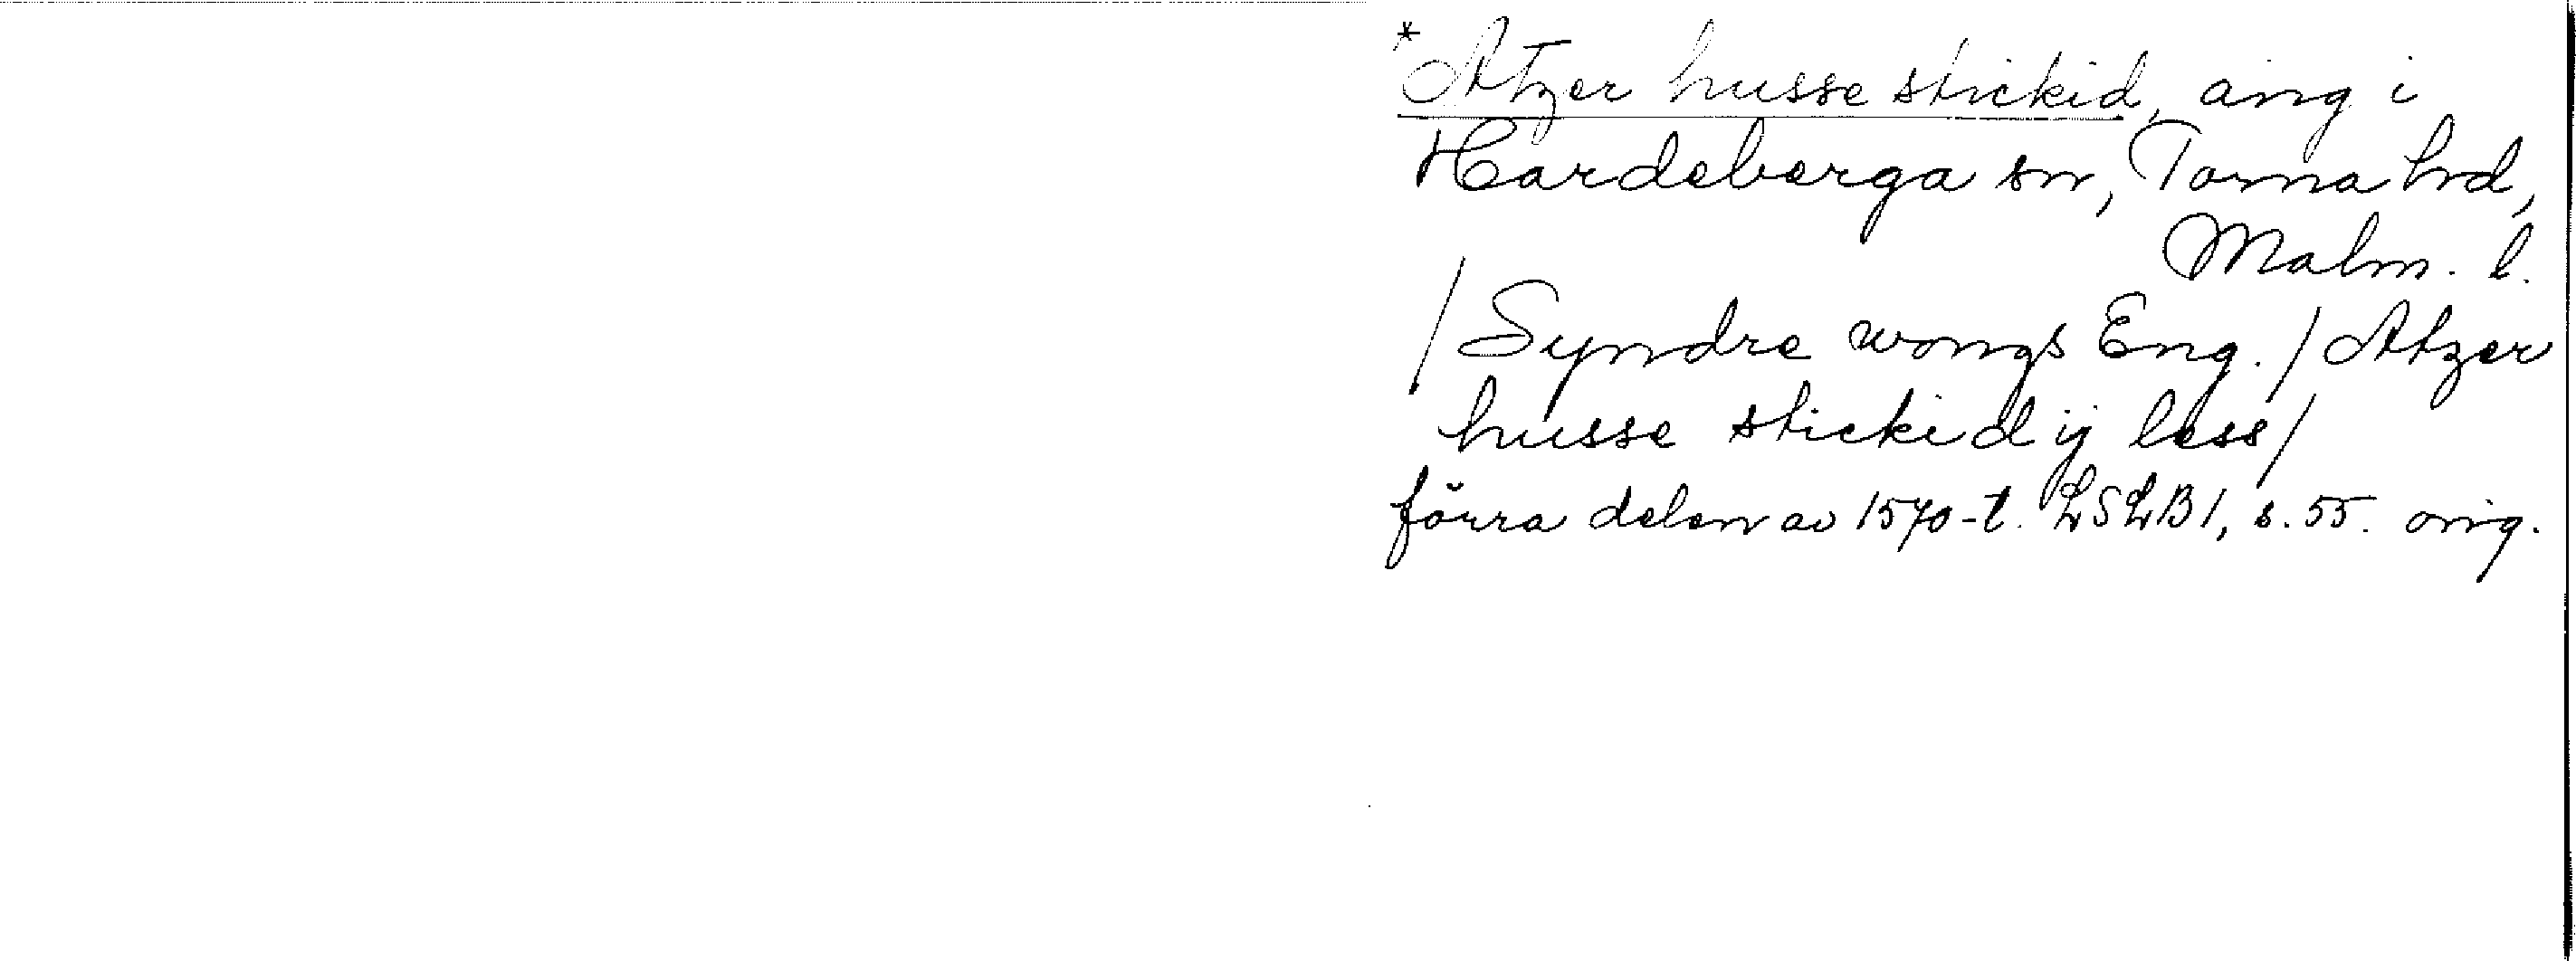 *Atzer husse stickid, äng i
Hardeberga sn, Torna hrd,
Malm. l.
/Syndre wongs Eng./Atzer
husse stickid ij less/
förra delen av 1570-t. LSLB1, s. 55. orig.